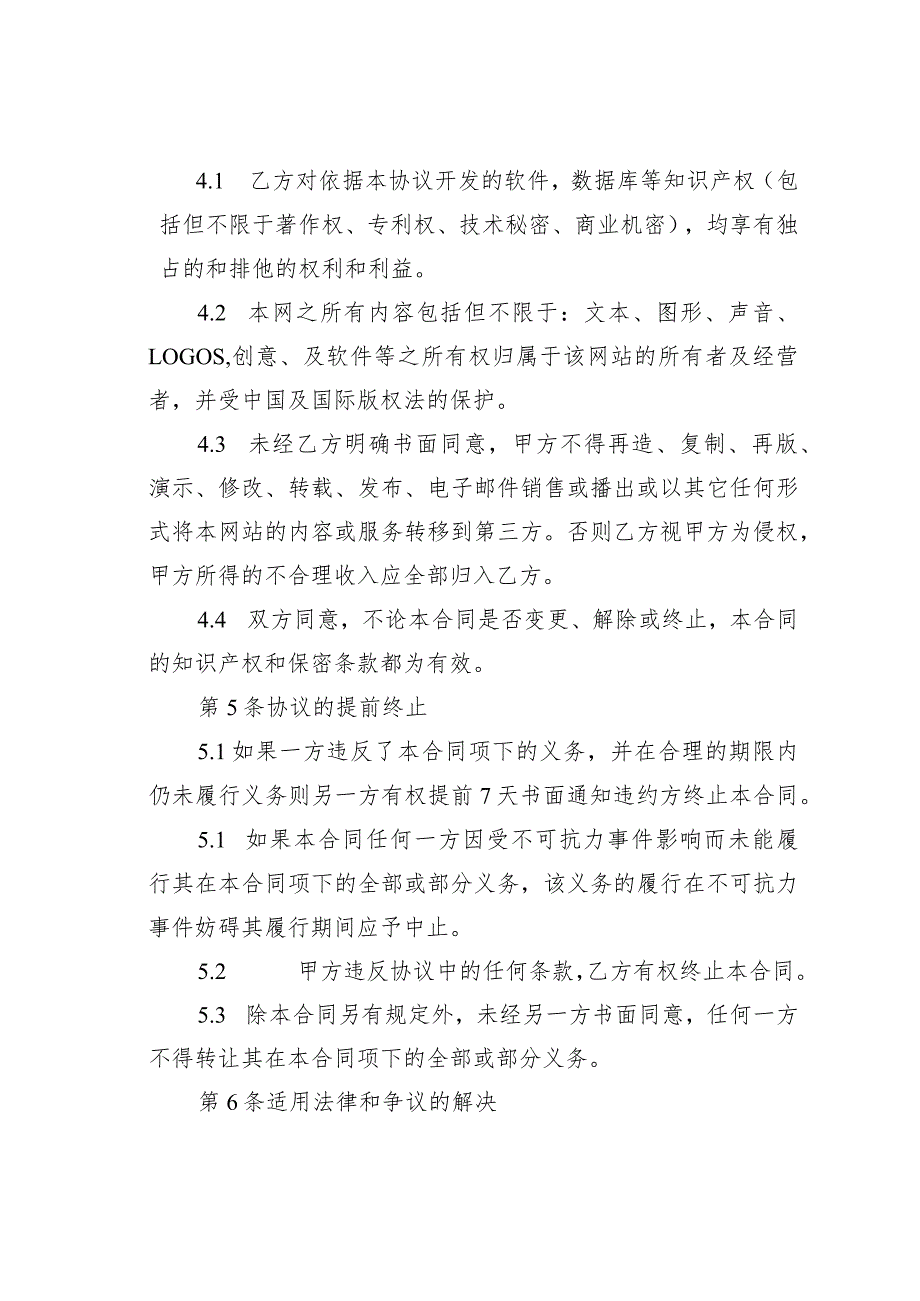 4.1 乙方对依据本协议开发的软件，数据库等知识产权（包
括但不限于著作权、专利权、技术秘密、商业机密），均享有独
占的和排他的权利和利益。
4.2 本网之所有内容包括但不限于：文本、图形、声音、
LOGOS,创意、及软件等之所有权归属于该网站的所有者及经营
者，并受中国及国际版权法的保护。
4.3 未经乙方明确书面同意，甲方不得再造、复制、再版、
演示、修改、转载、发布、电子邮件销售或播出或以其它任何形
式将本网站的内容或服务转移到第三方。否则乙方视甲方为侵权，
甲方所得的不合理收入应全部归入乙方。
4.4 双方同意，不论本合同是否变更、解除或终止，本合同
的知识产权和保密条款都为有效。
第5条协议的提前终止
5.1如果一方违反了本合同项下的义务，并在合理的期限内
仍未履行义务则另一方有权提前7天书面通知违约方终止本合同。
5.1 如果本合同任何一方因受不可抗力事件影响而未能履
行其在本合同项下的全部或部分义务，该义务的履行在不可抗力
事件妨碍其履行期间应予中止。
5.2 甲方违反协议中的任何条款，乙方有权终止本合同。
5.3 除本合同另有规定外，未经另一方书面同意，任何一方
不得转让其在本合同项下的全部或部分义务。
第6条适用法律和争议的解决